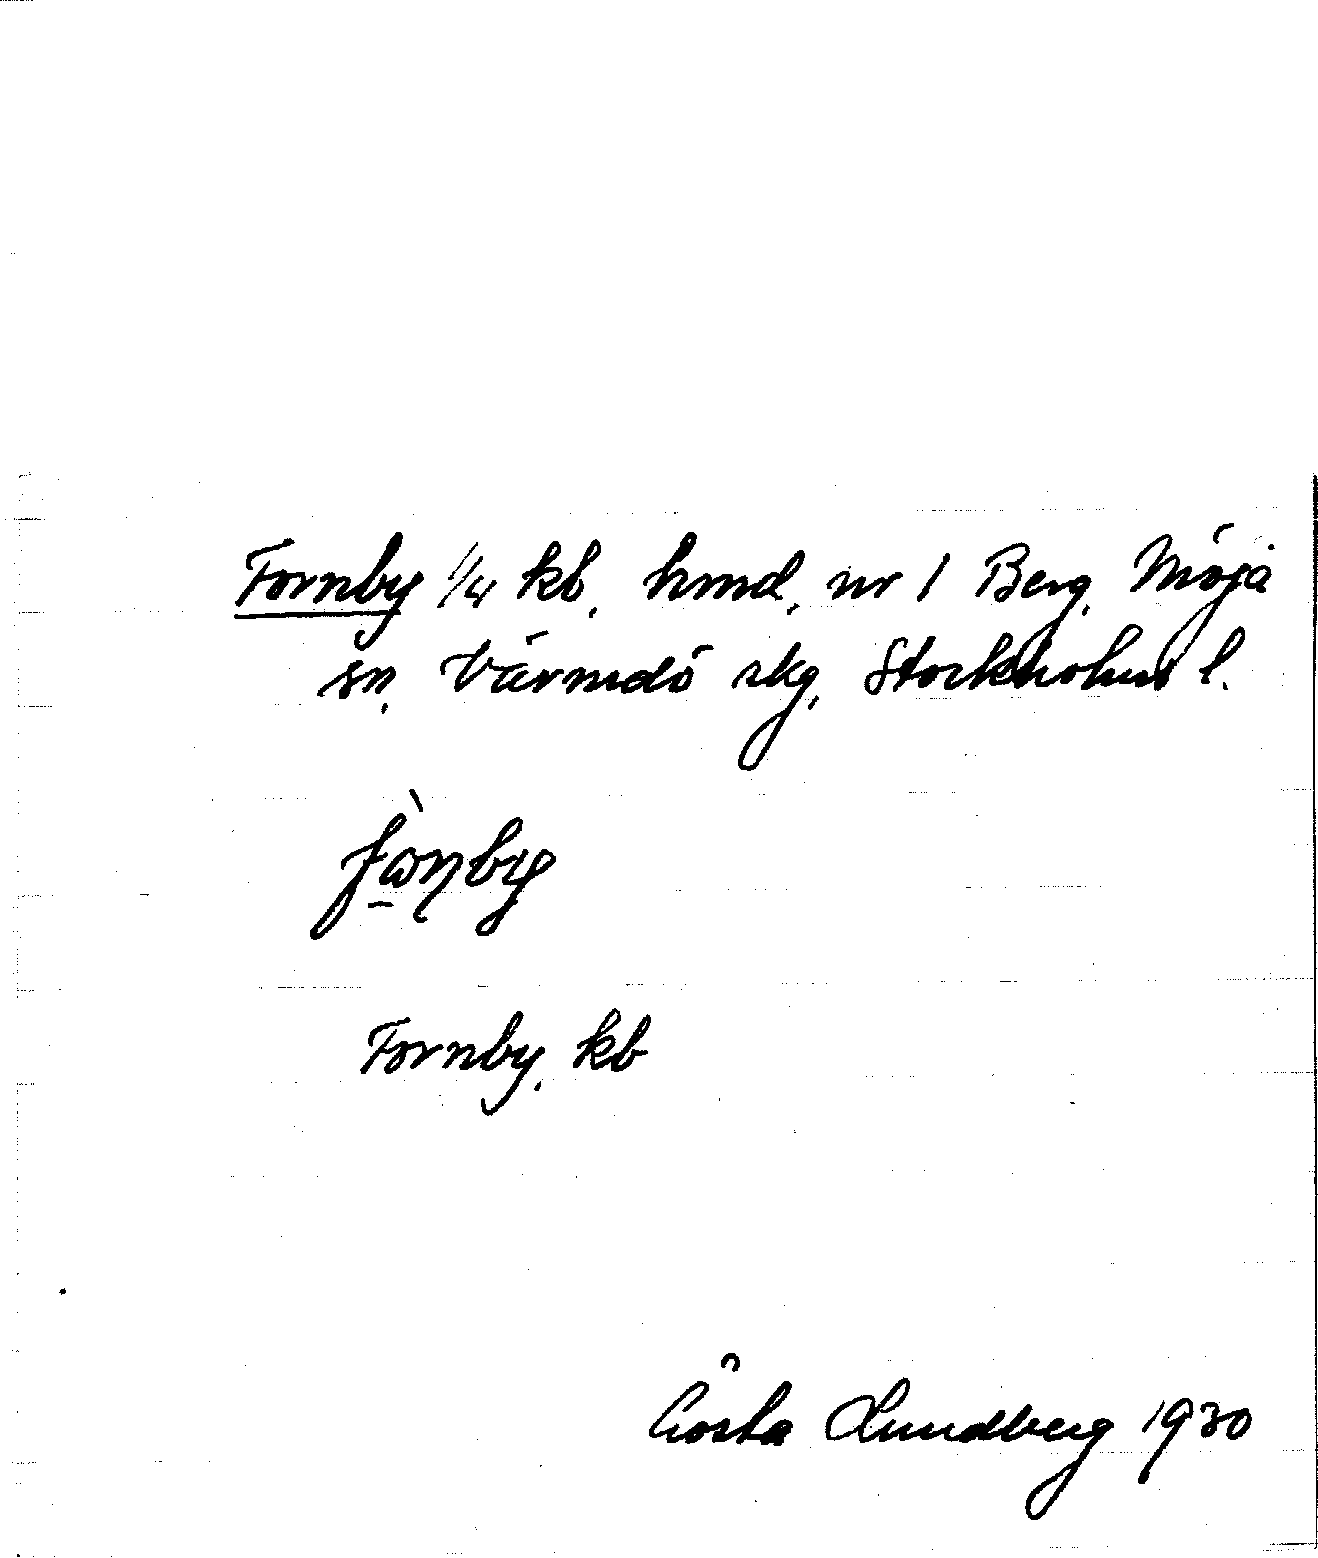 Fornby 1/4 kb, hmd, nr 1 Berg, Möja
sn, Värmdö skg, Stockholms l.
Fornby, kb
Gösta Lundberg 1930